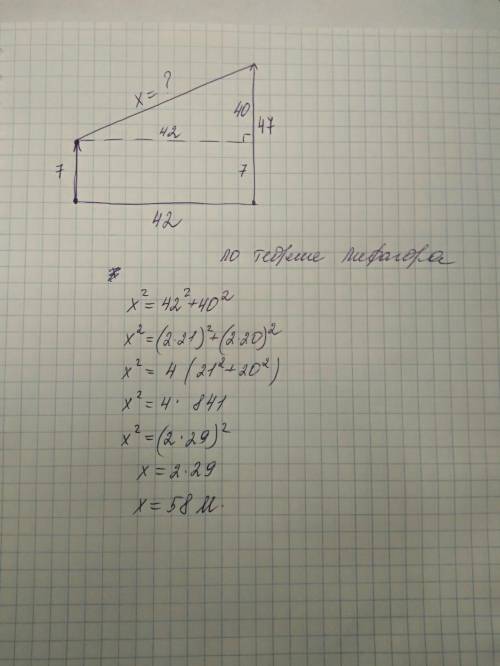 x = ?
40
42
47
7
7
42
по теореме Пифагора
x² = 42² + 40²
x² = (2·21)² + (2·20)²
x² = 4 (21² + 20²)
x² = 4 · 841
x² = (2·29)²
x = 2·29
x = 58 м.